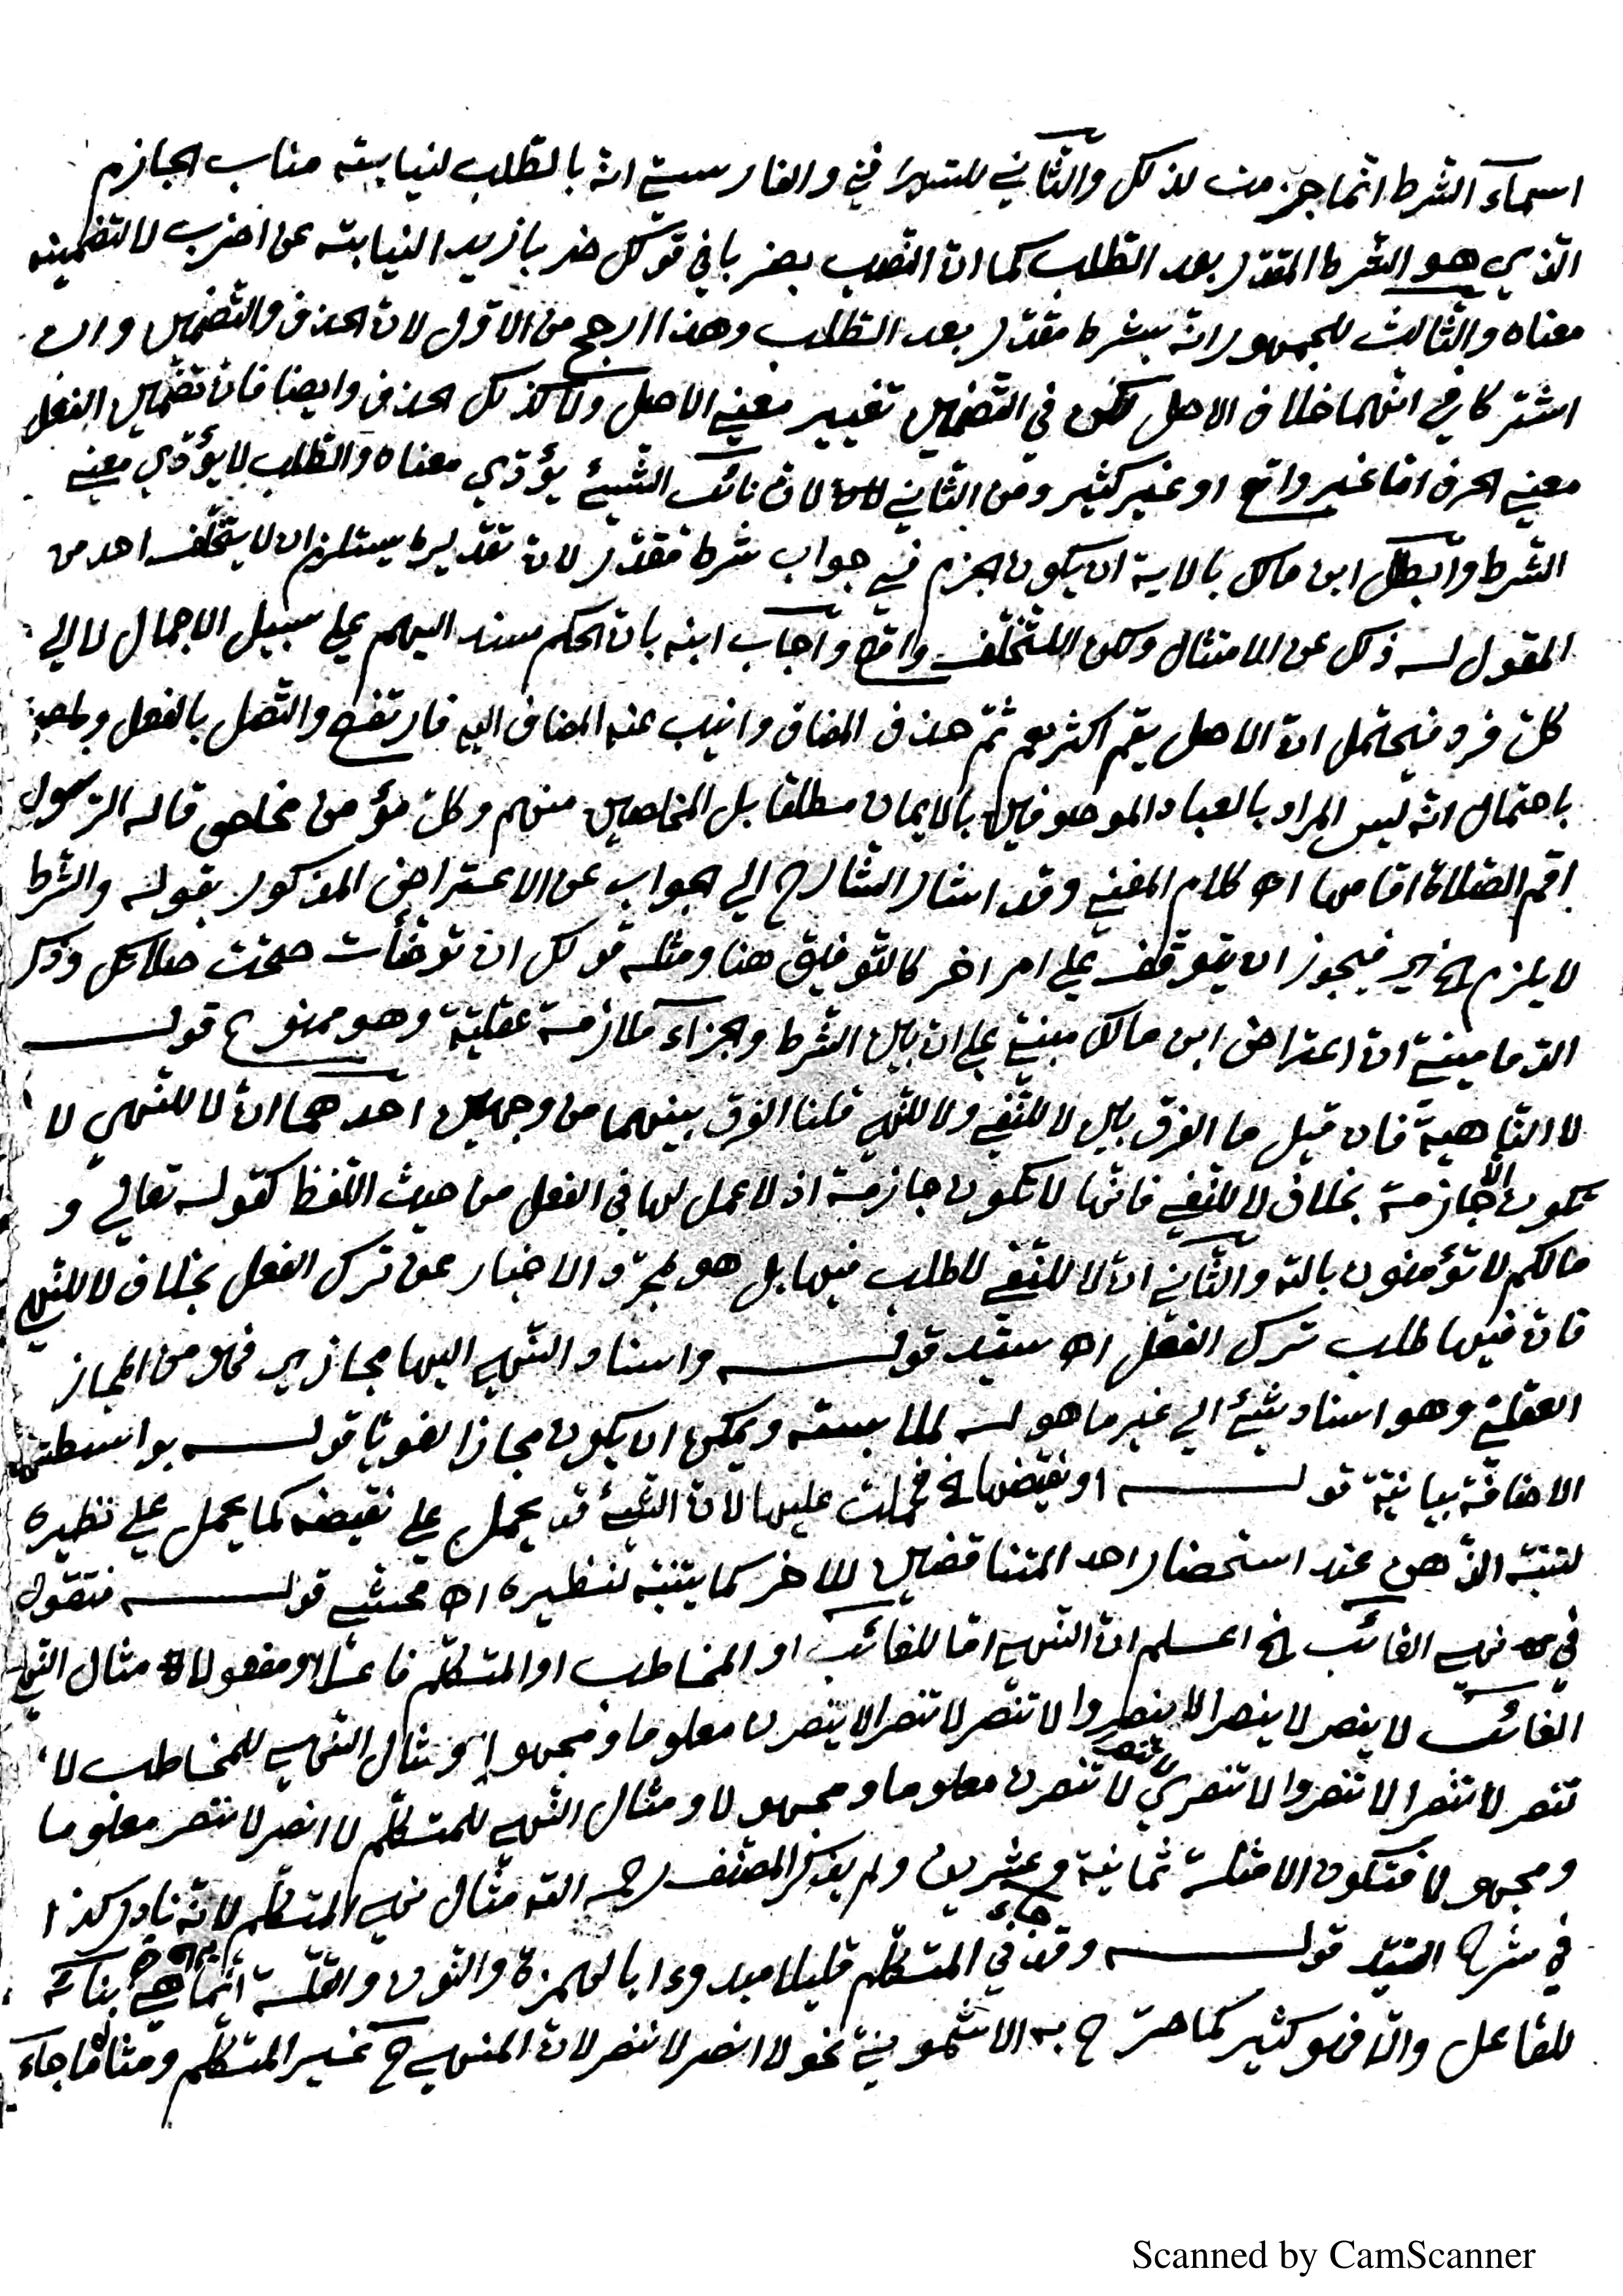 اسماء الشرط انما جزمت لذلك والثاني للسيرافي والفارسي انه بالطلب لنيابته مناب الجازم
الذي هو الشرط المقدر بعد الطلب كما ان النصب بضربا في قولك ضربا زيدا لنيابته عن اضرب لا لتضمينه
معناه والثالث للجمهور انه بشرط مقدر بعد الطلب وهذا ارجح من الاول لان الحذف والتضمين وان
اشتركا في انهما خلاف الاصل لكن في التضمين تغيير معنى الاصل ولا كذلك الحذف وايضا فان تضمين الفعل
معنى الحرف اما غير واقع او غير كثير ومن الثاني لان نائب الشيئ يؤدي معناه والطلب لا يؤدي معنى
الشرط وابطل ابن مالك بالاية ان يكون الجزم في جواب شرط مقدر لان تقديره يستلزم ان لا يتخلف احد من
المقول له ذلك عن الامتثال ولكن التخلف واقع واجاب ابنه بان الحكم مسند اليهم على سبيل الاجمال لا الى
كل فرد فيحتمل ان الاصل يقم اكثرهم ثم حذف المضاف وانيب عنه المضاف اليه فارتفع واتصل بالفعل
باحتمال انه ليس المراد بالعباد الموصوفين بالايمان مطلقا بل المخلصين منهم وكل مؤمن مخلص قال له الرسول
اقم الصلاة اقامها اه كلام المغني وقد اشار الشارح الى الجواب عن الاعتراض المذكور بقوله والشرط
لا يلزم الخ فيجوز ان يتوقف على امر اخر كالتوفيق هنا ومثله قولك ان توضأت صحت صلاتك وذكر
الدماميني ان اعتراض ابن مالك مبني على ان بين الشرط والجزاء ملازمة عقلية وهو ممنوع قوله
لا الناهية فان قيل ما الفرق بين لا للنفي ولا للنهي قلنا الفرق بينهما من وجهين احدهما ان لا للنهي لا
تكون الا جازمة بخلاف لا للنفي فانها لا تكون جازمة اذ لا عمل لها في الفعل من حيث اللفظ كقوله تعالى و
مالكم لا تؤمنون بالله والثاني ان لا للنفي لا طلب فيها بل هو لمجرد الاخبار عن ترك الفعل بخلاف لا للنهي
فان فيها طلب ترك الفعل اه سيد قوله واسناد النهي اليها مجازي فهو من المجاز
العقلي وهو اسناد شيئ الى غير ما هو له لملابسته ويمكن ان يكون مجازا لغويا قوله بواسطتها
الاضافة بيانية قوله او نقيضها الخ فحملت عليها لان الشيئ قد يحمل على نقيضه كما يحمل على نظيره
لتنبه الذهن عند استحضار احد المتناقضين للاخر كما يتنبه لنظيره اه محشي قوله فتقول
في نهي الغائب الخ اعلم ان النهي اما للغائب او المخاطب او المتكلم فاعلا ومفعولا مثال النهي
الغائب لا ينصر لا ينصرا لا ينصروا لا تنصر لا تنصرا لا ينصرن معلوما ومجهولا ومثال النهي للمخاطب لا
تنصر لا تنصرا لا تنصروا لا تنصري لا تنصرا لا تنصرن معلوما ومجهولا ومثال النهي للمتكلم لا انصر لا ننصر معلوما
ومجهولا فتكون الامثلة ثمانية وعشرين ولم يذكر المصنف رحمه الله مثال نهي المتكلم لانه نادر كذا
في شرح السيد قوله وقد جاء في المتكلم قليلا مبدوءا بالهمزة والنون والقلة انما هي في بنائه
للفاعل والا فهو كثير كما صرح به الاشموني نحو لا انصر لا ننصر لان المنهي ح غير المتكلم ومثال ما جاء
Scanned by CamScanner